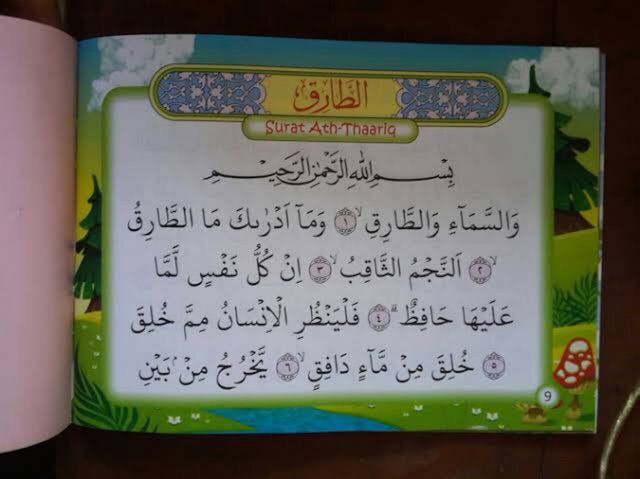 الطَّارِقِ
Surat Ath-Thaariq
بِسْمِ اللهِ الرَّحْمٰنِ الرَّحِيْمِ
وَالسَّمَاۤءِ وَالطَّارِقِۙ ۝١ وَمَآ اَدْرٰىكَ مَا الطَّارِقُ
ۙ ۝٢ اَلنَّجْمُ الثَّاقِبُۙ ۝٣ اِنْ كُلُّ نَفْسٍ لَّمَّا
عَلَيْهَا حَافِظٌۗ ۝٤ فَلْيَنْظُرِ الْاِنْسَانُ مِمَّ خُلِقَ
۝٥ خُلِقَ مِنْ مَّاۤءٍ دَافِقٍۙ ۝٦ يَّخْرُجُ مِنْۢ بَيْنِ
9